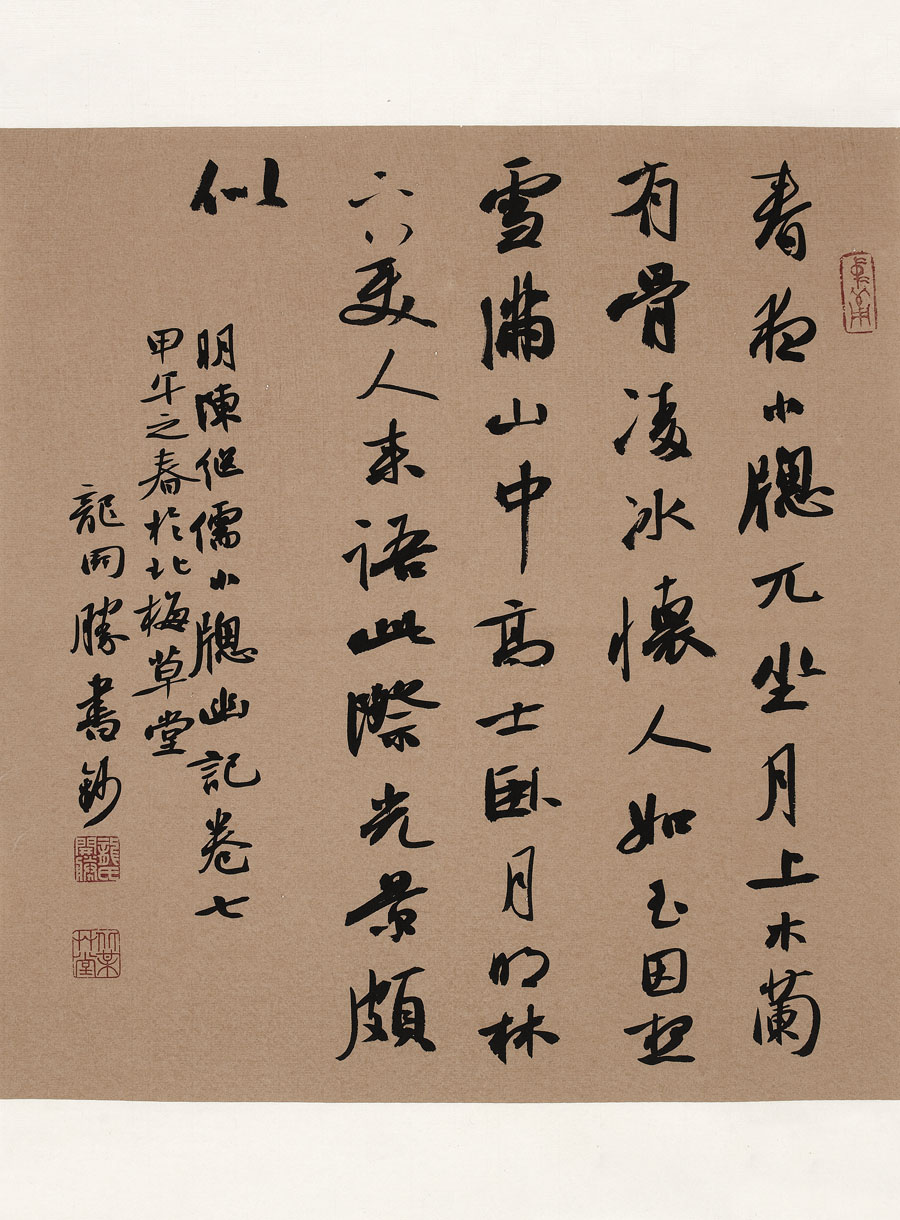 春夜小牕兀坐月上木蘭
有骨凌冰懷人如玉因想
雪滿山中高士臥月明林
下美人來語此際光景頗
似
明陳繼儒小牕幽記卷七
甲午之春於北梅草堂
龍開勝書鈔